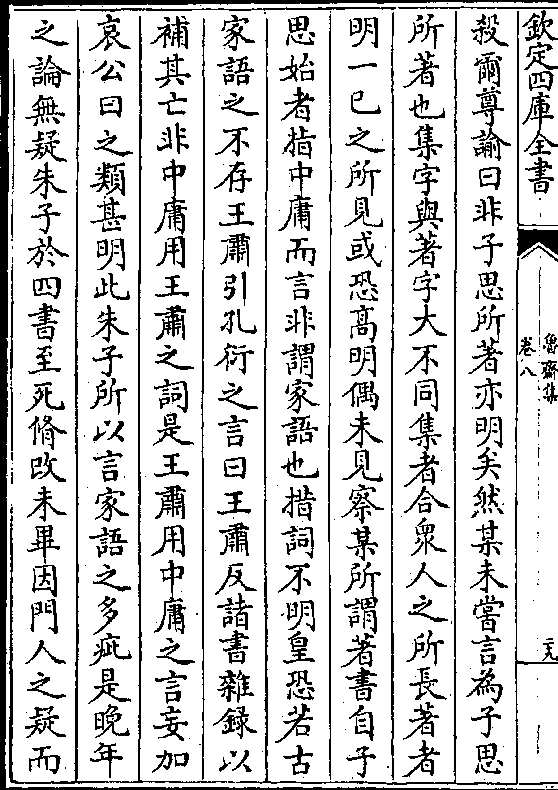 欽定四庫全書
魯齋集
卷八
二九
殺爾尊諭曰非子思所著亦明矣然某未嘗言為子思
所著也集字與著字大不同集者合衆人之所長著者
明一已之所見或恐髙明偶未見察某所謂著書自子
思始者指中庸而言非謂家語也措詞不明皇恐若古
家語之不存王肅引孔衍之言曰王肅反諸書雜録以
補其亡非中庸用王肅之詞是王肅用中庸之言妄加
哀公曰之類甚明此朱子所以言家語之多疵是晚年
之論無疑朱子於四書至死脩改未畢因門人之疑而